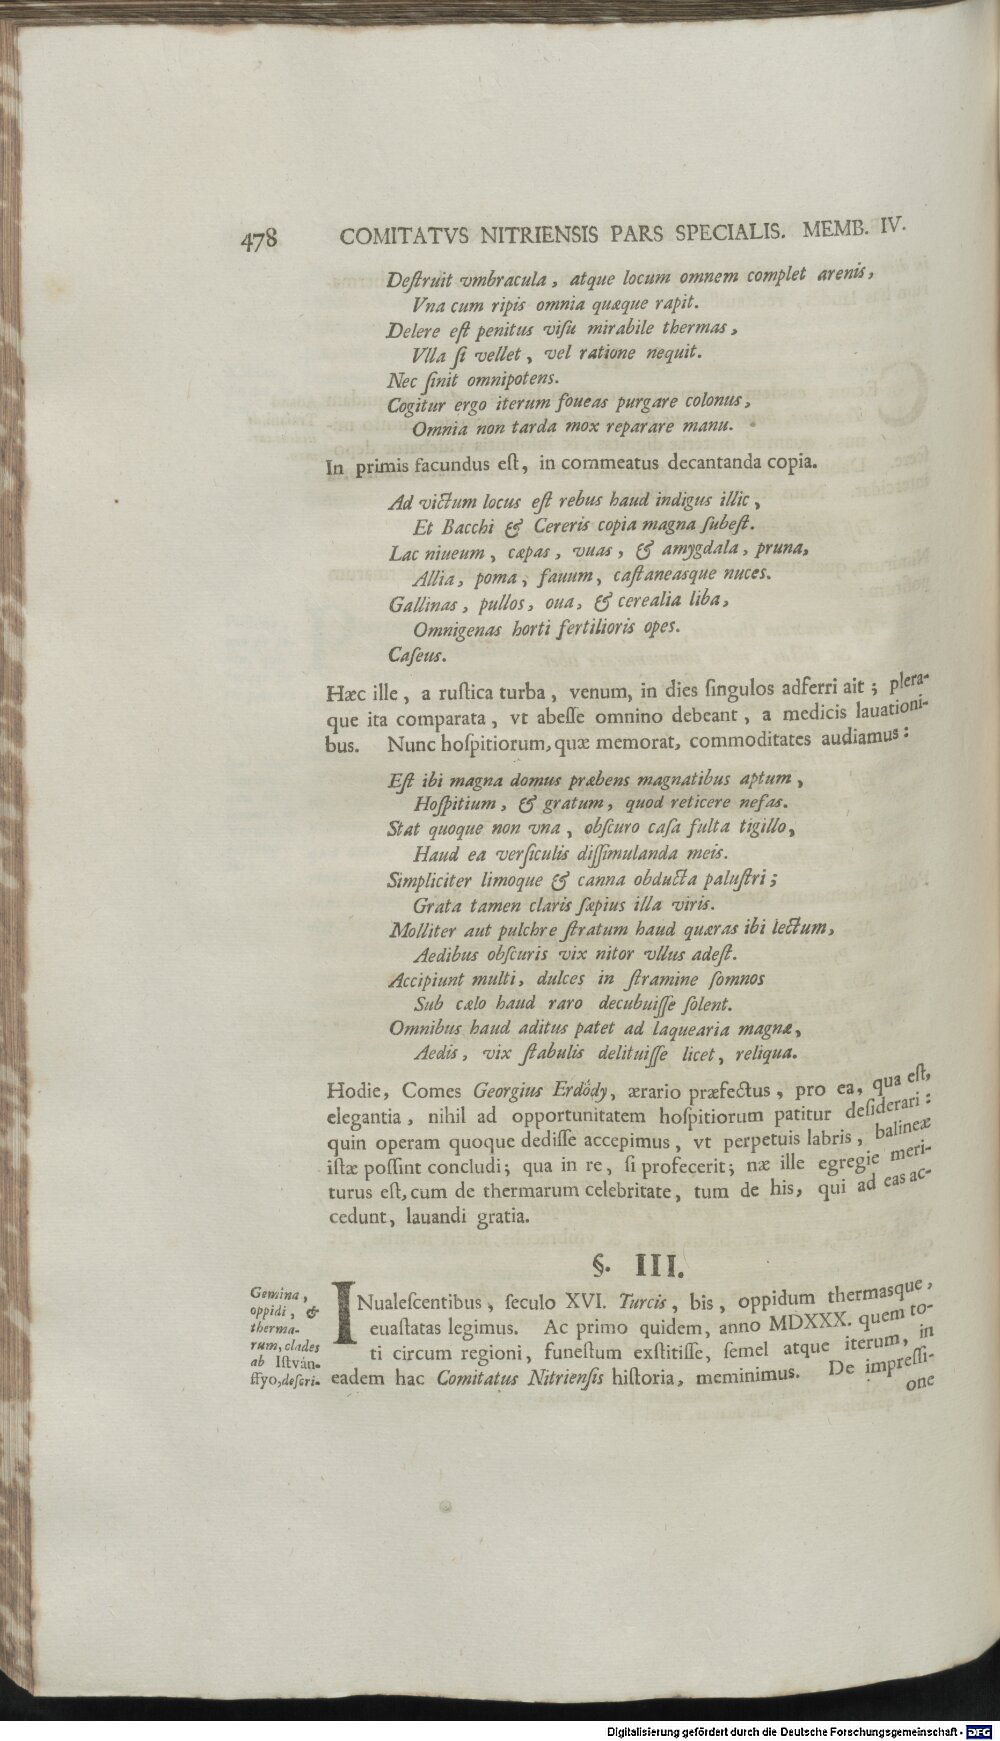 478 COMITATVS NITRIENSIS PARS SPECIALIS. MEMB. IV.
Deſtruit vmbracula, atque locum omnem complet arenis,
Vna cum ripis omnia quæque rapit.
Delere eſt penitus viſu mirabile thermas,
Vlla ſi vellet, vel ratione nequit.
Nec ſinit omnipotens.
Cogitur ergo iterum foueas purgare colonus,
Omnia non tarda mox reparare manu.
In primis facundus eſt, in commeatus decantanda copia.
Ad victum locus eſt rebus haud indigus illic,
Et Bacchi & Cereris copia magna ſubeſt.
Lac niueum, cæpas, vuas, & amygdala, pruna,
Allia, poma, fauum, caſtaneasque nuces.
Gallinas, pullos, oua, & cerealia liba,
Omnigenas horti fertilioris opes.
Caſeus.
Hæc ille, a ruſtica turba, venum, in dies ſingulos adferri ait; plera-
que ita comparata, vt abeſſe omnino debeant, a medicis lauationi-
bus. Nunc hoſpitiorum, quæ memorat, commoditates audiamus:
Eſt ibi magna domus præbens magnatibus aptum,
Hoſpitium, & gratum, quod reticere nefas.
Stat quoque non vna, obſcuro caſa fulta tigillo,
Haud ea verſiculis diſſimulanda meis.
Simpliciter limoque & canna obducta paluſtri;
Grata tamen claris ſæpius illa viris.
Molliter aut pulchre ſtratum haud quæras ibi lectum,
Aedibus obſcuris vix nitor vllus adeſt.
Accipiunt multi, dulces in ſtramine ſomnos
Sub cælo haud raro decubuiſſe ſolent.
Omnibus haud aditus patet ad laquearia magnæ,
Aedis, vix ſtabulis delituiſſe licet, reliqua.
Hodie, Comes Georgius Erdődy, ærario præfectus, pro ea, qua eſt,
elegantia, nihil ad opportunitatem hoſpitiorum patitur deſiderari:
quin operam quoque dediſſe accepimus, vt perpetuis labris, balineæ
iſtæ poſſint concludi; qua in re, ſi profecerit; næ ille egregie meri-
turus eſt, cum de thermarum celebritate, tum de his, qui ad eas ac-
cedunt, lauandi gratia.
§. III.
Gemina,
oppidi, &
therma-
rum, clades
ab Iſtván-
ffyo, deſcri-
INualeſcentibus, ſeculo XVI. Turcis, bis, oppidum thermasque,
euaſtatas legimus. Ac primo quidem, anno MDXXX. quem to-
ti circum regioni, funeſtum exſtitiſſe, ſemel atque iterum, in
eadem hac Comitatus Nitrienſis hiſtoria, meminimus. De impreſſi-
one
Digitalisierung gefördert durch die Deutsche Forschungsgemeinschaft - DFG